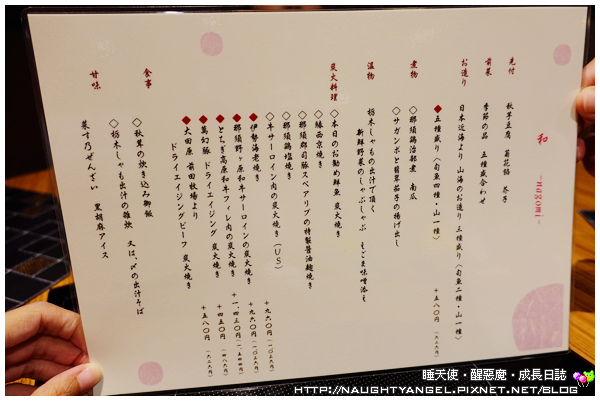 和
-nagomi-
先付
秋子豆腐 菊花餡 芥子
前菜
季節の品 五種盛合わせ
お造り
日本近海より 山海のお造り 三種盛り（旬魚二種・山一種）
◆五種盛り（旬魚四種・山一種） +五八〇円
煮物
◇那須鶏治部煮 南瓜
◇サガンボと翡翠茄子の揚げ出し
温物
栃木しゃもの出汁で頂く
新鮮野菜のしゃぶしゃぶ えごま味噌添え
炭火料理
◇本日のお勧め鮮魚 炭火焼き
◇縁西京焼き
◇那須郡司豚スペアリブの特製醤油麹焼き
◇那須鶏塩焼き
◇牛サーロイン肉の炭火焼き（US） +九六〇円
◆伊勢海老焼き +九六〇円
◆那須野ヶ原和牛サーロインの炭火焼き +一、四三〇円
◆とちぎ高原和牛フィレ肉の炭火焼き
◆萬幻豚 ドライエイジング 炭火焼き +四五〇円
◆大田原 前田牧場より
ドライエイジングビーフ 炭火焼き +五八〇円
食事
◇秋茸の炊き込み御飯
◇栃木しゃも出汁の雑炊 又は、〆の出汁そば
甘味
菜す乃ぜんざい 黒胡麻アイス
睡天使・醒惡魔・成長日誌
HTTP://NAUGHTYANGEL.PIXNET.NET/BLOG